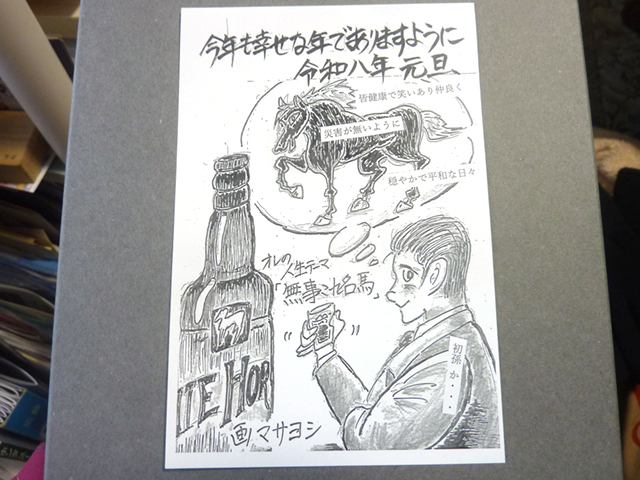 今年も幸せな年でありますように
令和八年 元旦
皆健康で笑いあり仲良く
災害が無いように
穏やかで平和な日々
オレの
人生テーマ
「無事これ名馬」
初孫 か・・・・
ITE HOR
画 マサヨシ